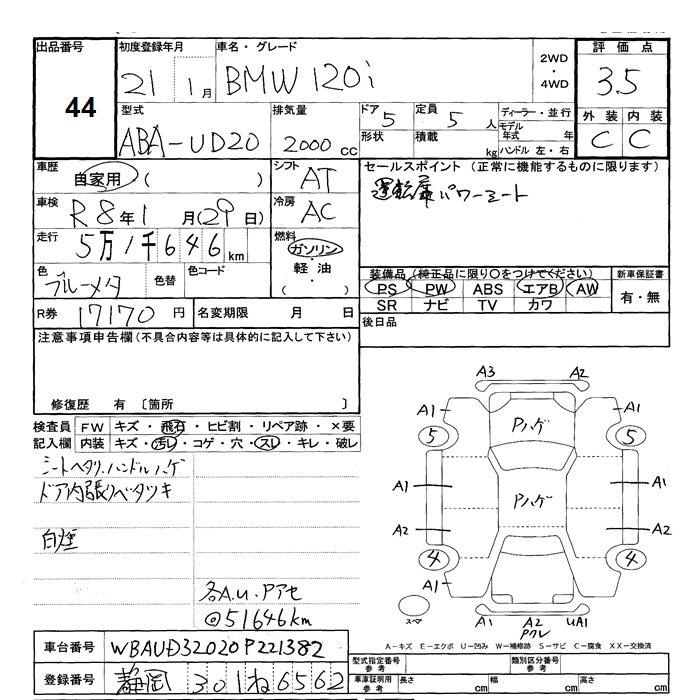 出品番号 初度登録年月 車名・グレード 評価点
44 21 1月 BMW 120i 2WD・4WD 3.5
型式 排気量 ドア 定員 ディーラー・並行 外装 内装
ABA-UD20 2000cc 5 5人 モデル年式 年 C C
形状 積載 kg ハンドル 左・右
車歴 自家用 ( ) シフト AT セールスポイント (正常に機能するものに限ります)
運転席パワーシート
車検 R8年1月(29日) 冷房 AC
走行 5万1千646km 燃料 ガソリン・軽油・( )
色 ブルーメタ 色替 色コード
装備品 (純正品に限り○をつけてください) 新車保証書
PS PW ABS エアB AW 有・無
SR ナビ TV カワ
R券 17170円 名変期限 月 日 後日品
注意事項申告欄(不具合内容等は具体的に記入して下さい)
修復歴 有 〔箇所 〕
検査員記入欄 FW キズ・飛石・ヒビ割・リペア跡・×要
内装 キズ・汚レ・コゲ・穴・スレ・キレ・破レ
シートヘタリ、ハンドルハゲ
ドア内張りベタツキ
白煙
各A.U.Pアセ
@51646km
A3 A2
A1 Pハゲ A1
5 5
A1 Pハゲ A1
A2 A2
4 4
A1
スペア A1 A2 UA1
Pワレ
A-キズ E-エクボ U-凹み W-補修跡 S-サビ C-腐食 XX-交換済
車台番号 WBAUD32020P221382
型式指定番号 参考 類別区分番号 参考
登録番号 静岡 301 ね 6562
車庫証明用 参考 長さ cm 幅 cm 高さ cm